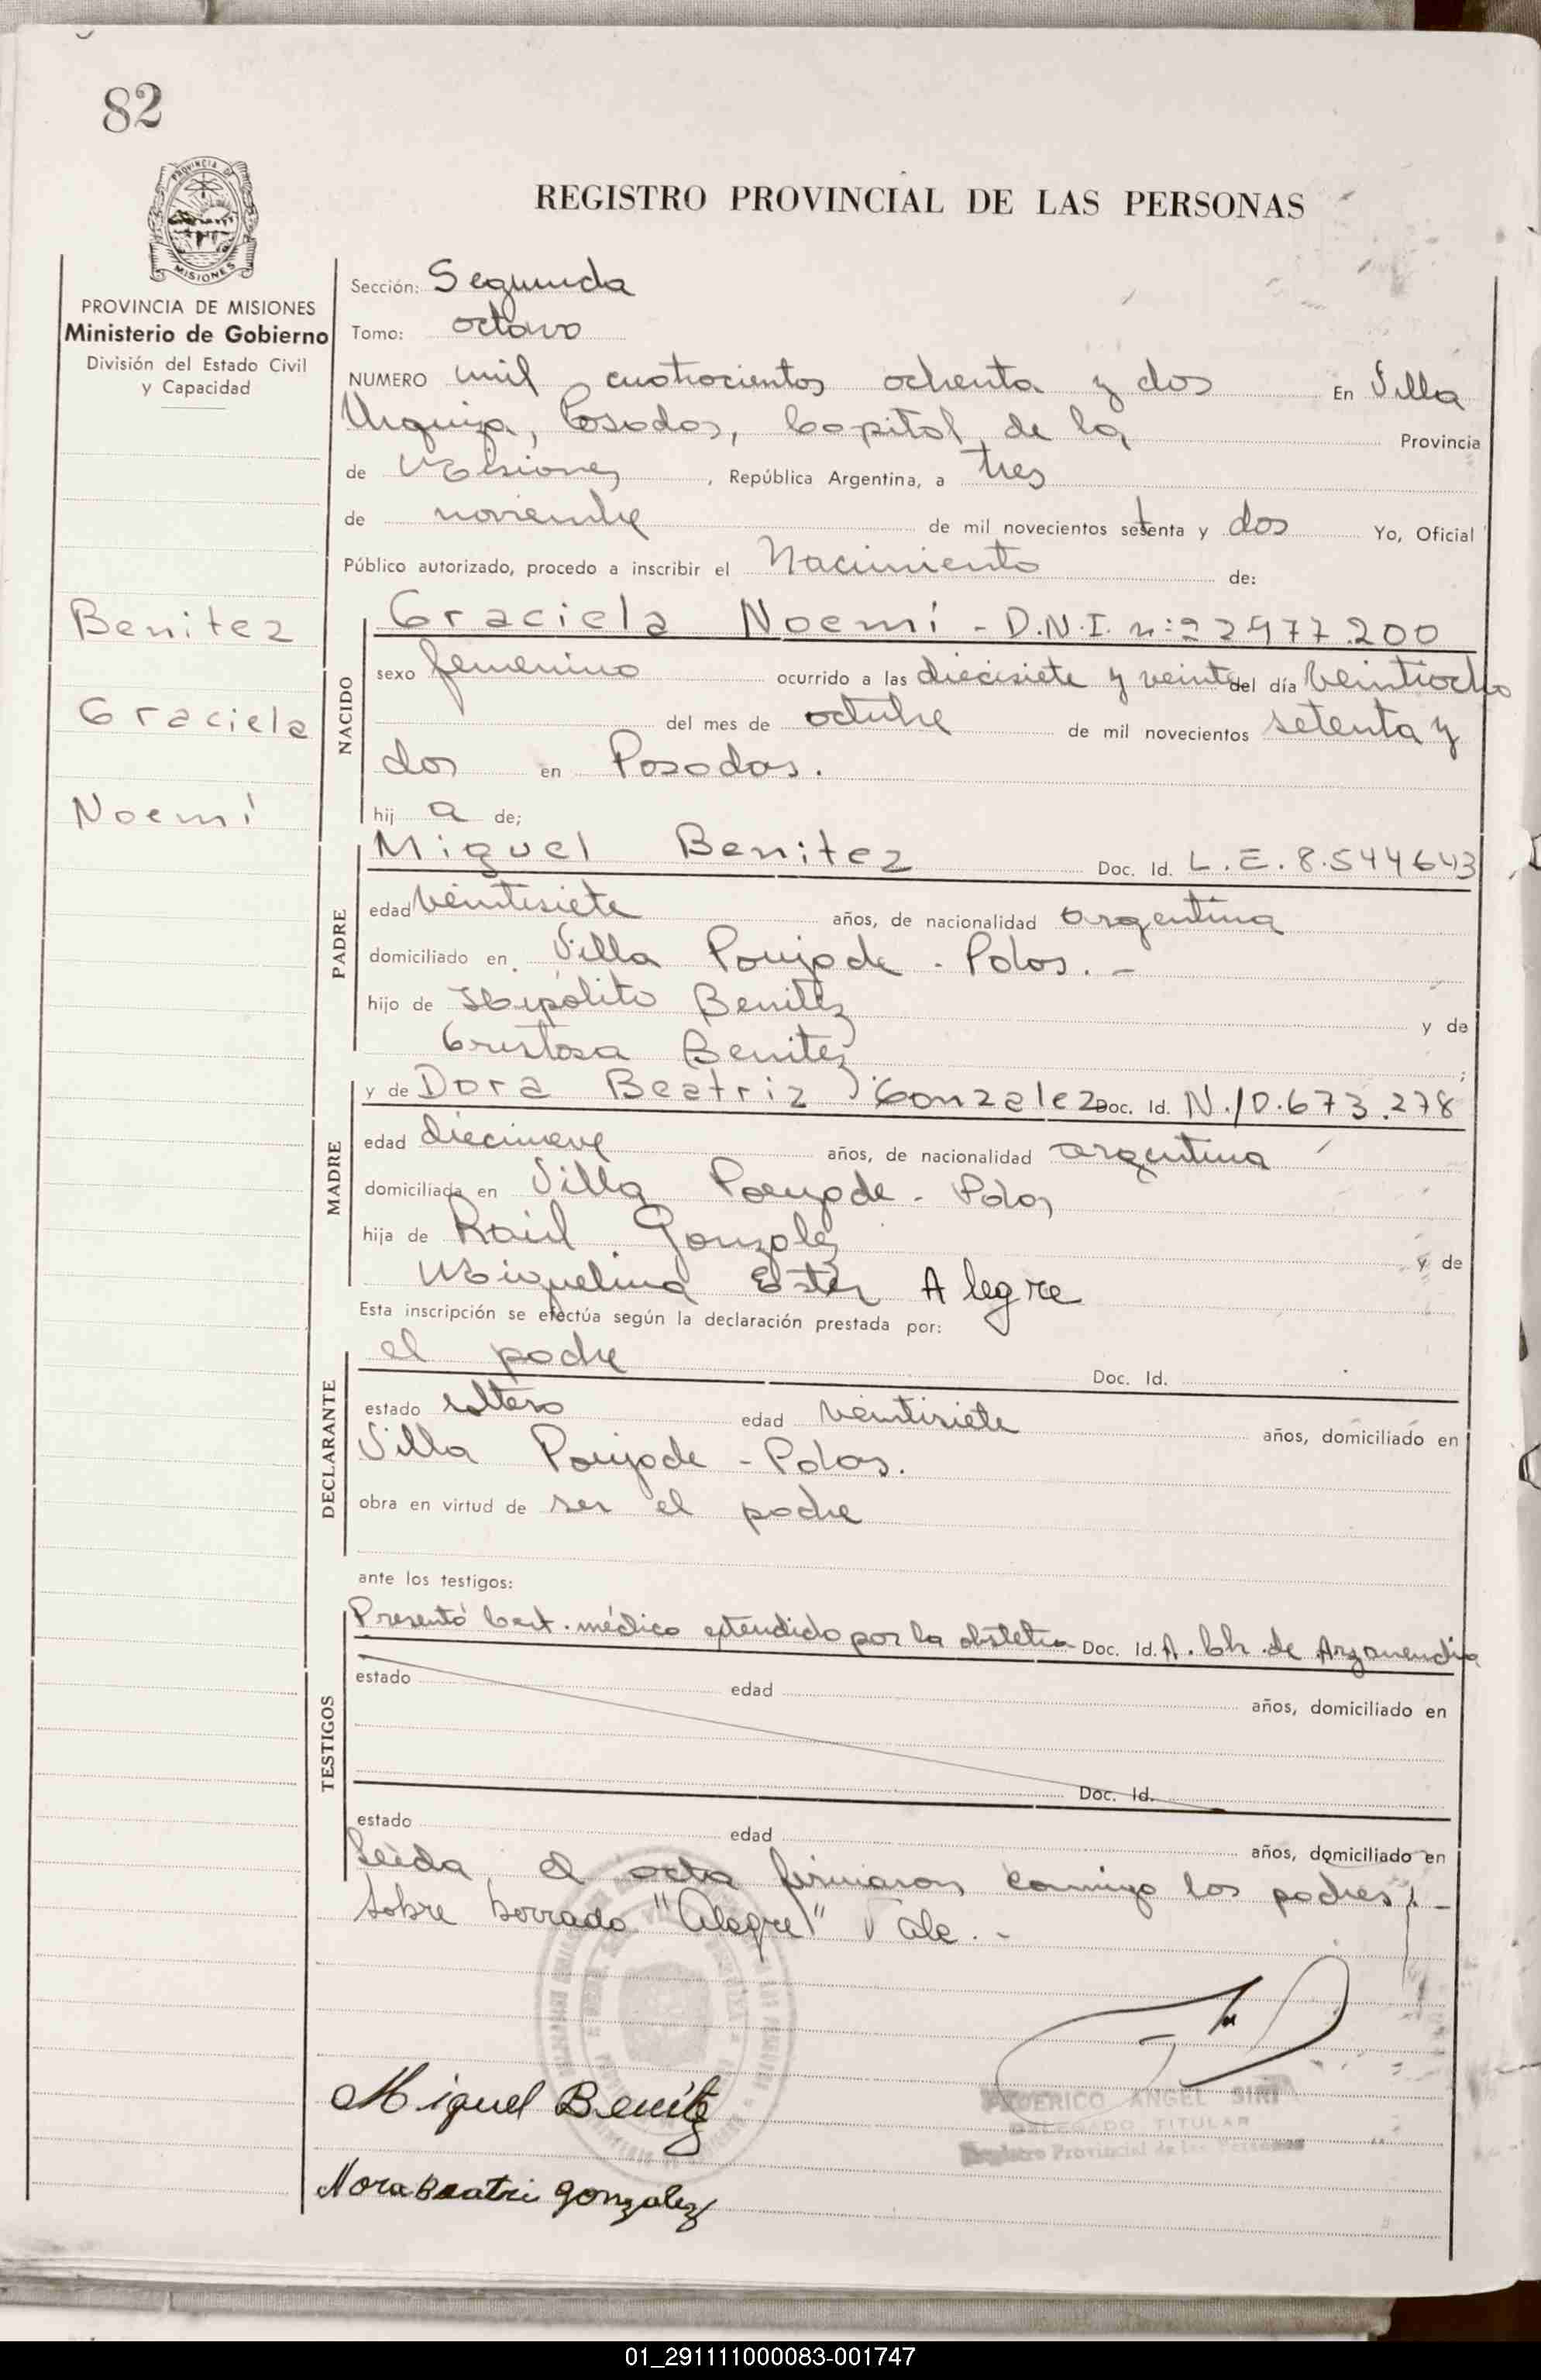 82
PROVINCIA DE
MISIONES
PROVINCIA DE MISIONES
Ministerio de Gobierno
División del Estado Civil
y Capacidad
Benitez
Graciela
Noemí
REGISTRO PROVINCIAL DE LAS PERSONAS
Sección: Segunda
Tomo: octavo
NUMERO mil cuatrocientos ochenta y dos En Villa
Urquiza, Posadas, Capital de la Provincia
de Misiones, República Argentina, a tres
de noviembre de mil novecientos setenta y dos Yo, Oficial
Público autorizado, procedo a inscribir el Nacimiento de:
NACIDO
Graciela Noemí - D.N.I. nº 22977.200
sexo femenino ocurrido a las diecisiete y veinte del día veintiocho
del mes de octubre de mil novecientos setenta y
dos en Posadas.
hij a de;
PADRE
Miguel Benitez Doc. Id. L.E. 8.544643
edad veintisiete años, de nacionalidad argentina
domiciliado en Villa Poujade - Pdas. -
hijo de Hipólito Benitez y de
Benitez;
MADRE
y de Dora Beatriz Gonzalez Doc. Id. N. 10.673.278
edad diecinueve años, de nacionalidad argentina
domiciliada en Villa Poujade - Pdas
hija de Raúl Gonzalez y de
Miquelina Ester Alegre
Esta inscripción se efectúa según la declaración prestada por:
DECLARANTE
el padre Doc. Id.
estado soltero edad veintisiete años, domiciliado en
Villa Poujade - Pdas.
obra en virtud de ser el padre
ante los testigos:
TESTIGOS
Presentó Cert. médico extendido por la obstetra Doc. Id. A. Ch. de
estado edad años, domiciliado en
Doc. Id.
estado edad años, domiciliado en
Leída el acta firmaron conmigo los padres; -
sobre borrado "Alegre" Vale. -
FEDERICO ANGEL SIRI
DELEGADO TITULAR
Registro Provincial de las Personas
Miguel Benítez
Nora Beatri gonzalez
01_291111000083-001747